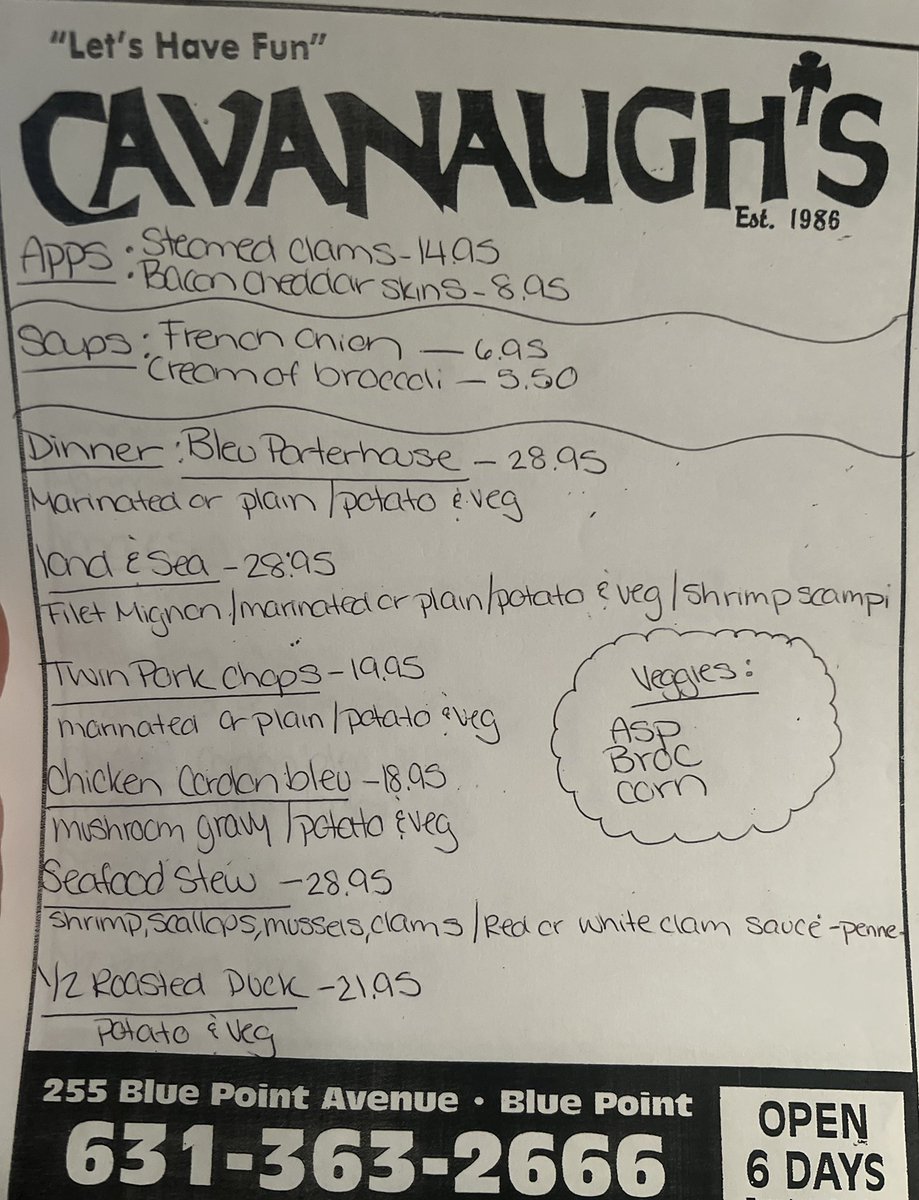 "Let's Have Fun"
CAVANAUGH'S
Est. 1986
Apps : • Steamed clams - 14.95
• Bacon cheddar skins - 8.95
Soups : French Onion — 6.95
Cream of broccoli — 5.50
Dinner : Bleu Porterhouse - 28.95
Marinated or plain / potato & veg
land & Sea - 28.95
Filet Mignon / marinated or plain / potato & veg / shrimp scampi
Twin Pork chops - 19.95
marinated or plain / potato & veg
Veggies :
Asp
Broc
corn
Chicken Cordon bleu - 18.95
mushroom gravy / potato & veg
Seafood Stew - 28.95
shrimp, scallops, mussels, clams / Red or white clam sauce - penne -
1/2 Roasted Duck - 21.95
potato & veg
255 Blue Point Avenue • Blue Point
631-363-2666
OPEN
6 DAYS